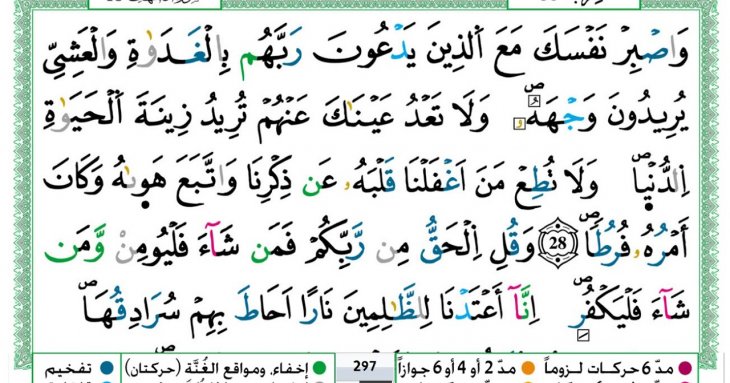 وَاصْبِرْ نَفْسَكَ مَعَ اَ۬لذِينَ يَدْعُونَ رَبَّهُم بِالْغَدَوٰةِ وَالْعَشِيِّ
يُرِيدُونَ وَجْهَهُۥۖ وَلَا تَعْدُ عَيْنَٰكَ عَنْهُمْ تُرِيدُ زِينَةَ اَ۬لْحَيَوٰةِ
اِ۬لدُّنْي۪اۖ وَلَا تُطِعْ مَنَ اَغْفَلْنَا قَلْبَهُۥ عَن ذِكْرِنَا وَاتَّبَعَ هَو۪ىٰهُ وَكَانَ
أَمْرُهُۥ فُرُطاٗۖ 28 وَقُلِ اِ۬لْحَقُّ مِن رَّبِّكُمْ فَمَن شَآءَ فَلْيُومِنْ وَّمَن
شَآءَ فَلْيَكْفُرِۖ اِنَّآ أَعْتَدْنَا لِلظَّٰلِمِينَ نَاراً اَحَاطَ بِهِمْ سُرَادِقُهَاۖ
مدّ 6 حركات لزوماً مدّ 2 أو 4 أو 6 جوازاً 297 إخفاء، ومواقع الغُنَّة (حركتان) تفخيم